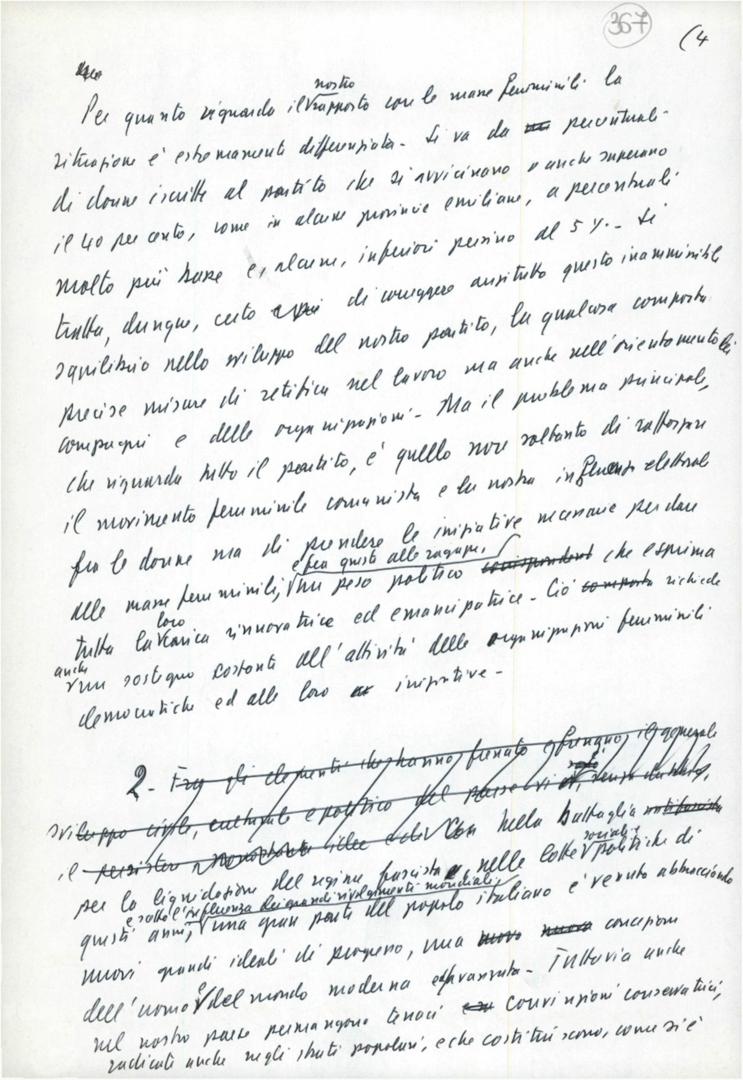 367
(4
Per quanto riguarda il nostro rapporto con le masse femminili la
situazione è estremamente differenziata - Si va da percentuali
di donne iscritte al partito che si avvicinano o anche superano
il 40 per cento, come in alcune provincie emiliane, a percentuali
molto più basse e, alcune, inferiori persino al 5 %. - Si
tratta, dunque, certo di correggere anzitutto questo inammissibile
squilibrio nello sviluppo del nostro partito, la qualcosa comporta
precise misure di retifica nel lavoro ma anche nell'orientamento dei
compagni e delle organizzazioni - Ma il problema principale,
che riguarda tutto il partito, è quello non soltanto di rafforzare
il movimento femminile comunista e la nostra influenza elettorale
fra le donne ma di prendere le iniziative necessarie per dare
alle masse femminili, e fra queste alle ragazze, un peso politico corrispondente che esprima
tutta la loro carica rinnovatrice ed emancipatrice - Ciò comporta richiede
anche un sostegno costante all'attività delle organizzazioni femminili
democratiche ed alle loro iniziative -
2 - Fra gli elementi che hanno frenato e frenano il generale
sviluppo civile, culturale e politico del paese vi è, senza dubbio,
il persistere idee Con nella battaglia antifascista
per la liquidazione del regime fascista e nelle lotte sociali e politiche di
questi anni, e sotto l'influenza dei grandi rivolgimenti mondiali, una gran parte del popolo italiano è venuto abbracciando
nuovi grandi ideali di progresso, una nuova concezione
dell'uomo e del mondo moderna ed avanzata - Tuttavia anche
nel nostro paese permangono tenaci convinzioni conservatrici,
radicate anche negli strati popolari, e che costituiscono, come si è